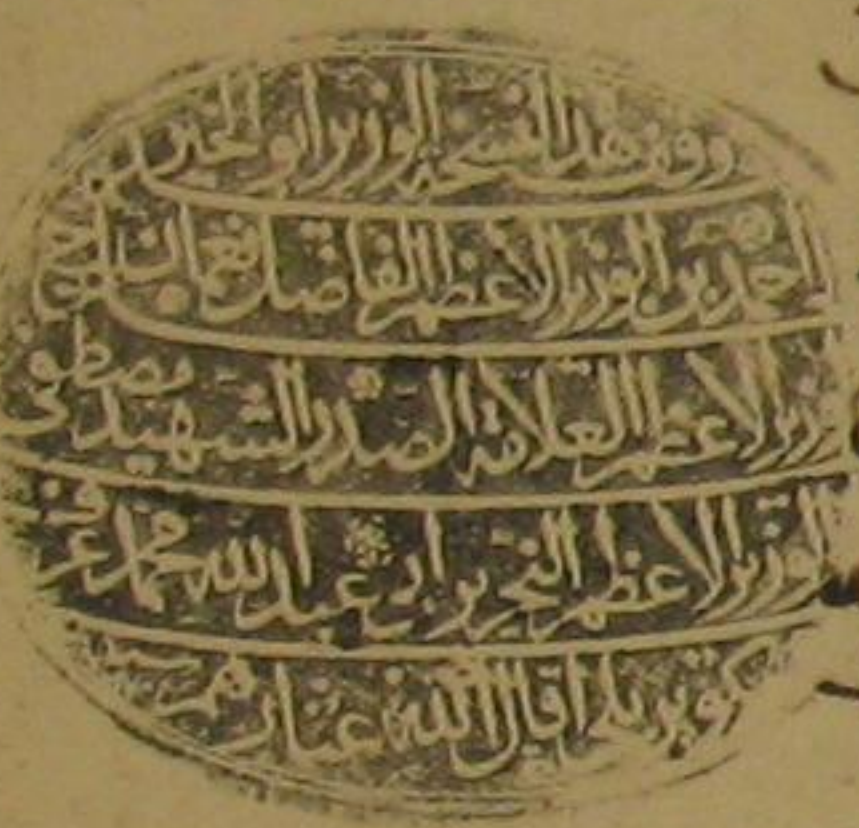 وقف هذه النسخة الوزير أبو الخير
احمد بن الوزير الأعظم الفاضل نعمان بن
الوزير الأعظم العلامة الصدر الشهيد مصطفى
الوزير الأعظم النحرير أبي عبد الله محمد عرف
بكوبريلي أقال الله عثارهم